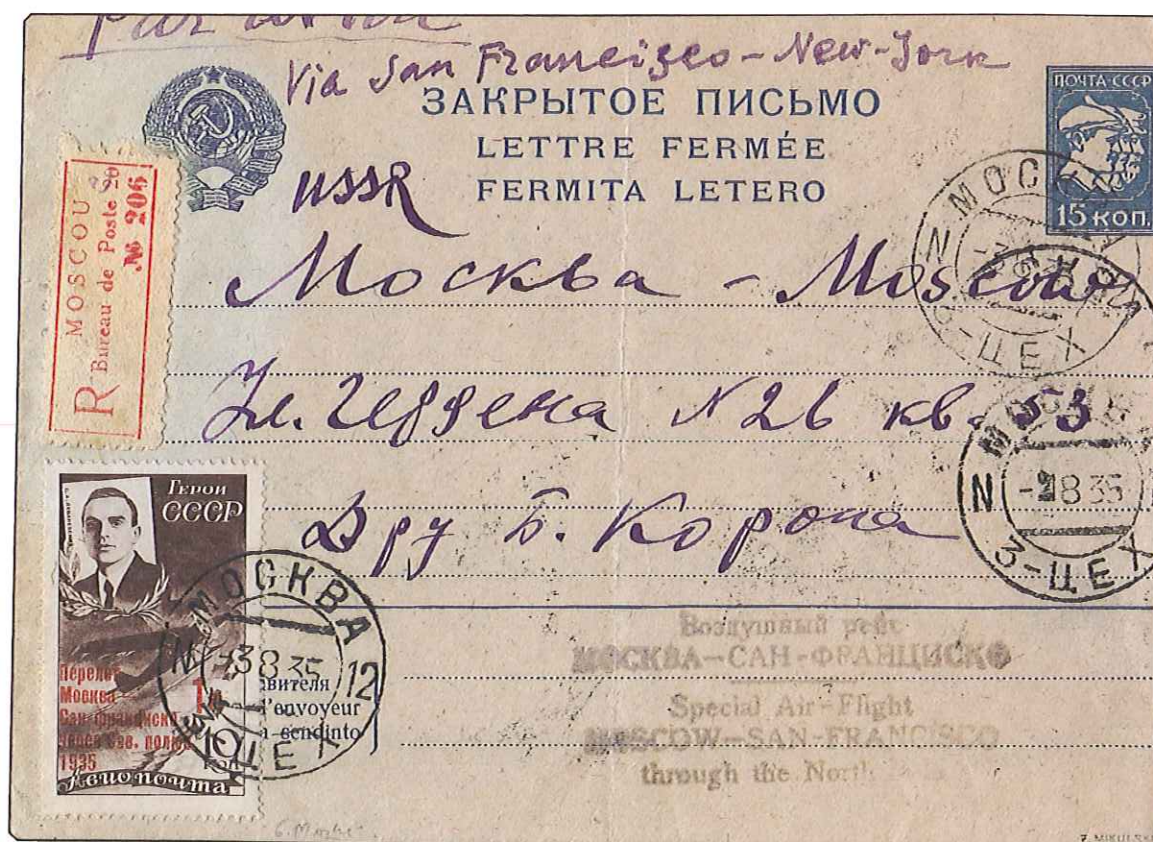 Par avion
Via San Francizco-New-Jork
ЗАКРЫТОЕ ПИСЬМО
LETTRE FERMÉE
FERMITA LETERO
USSR
ПОЧТА СССР
15 КОП.
MOSCOU
Bureau de Poste
№ 206
R
МОСКВА
3-ЦЕХ
Москва - Moscow
Ул. Герцена N26 кв. 53
МОСКВА
-8 35
3-ЦЕХ
Дру Б. Корона
ГЕРОИ
СССР
Перелет
Москва-
Сан-Франциско
через Сев. полюс
1935
1р.
10
коп
Авиопочта
МОСКВА
-3 8 35
12
ЦЕХ
вителя
l'envoyeur
sendinto
Воздушный рейс
МОСКВА-САН-ФРАНЦИСКО
Special Air-Flight
MOSCOW-SAN-FRANCISCO
through the North